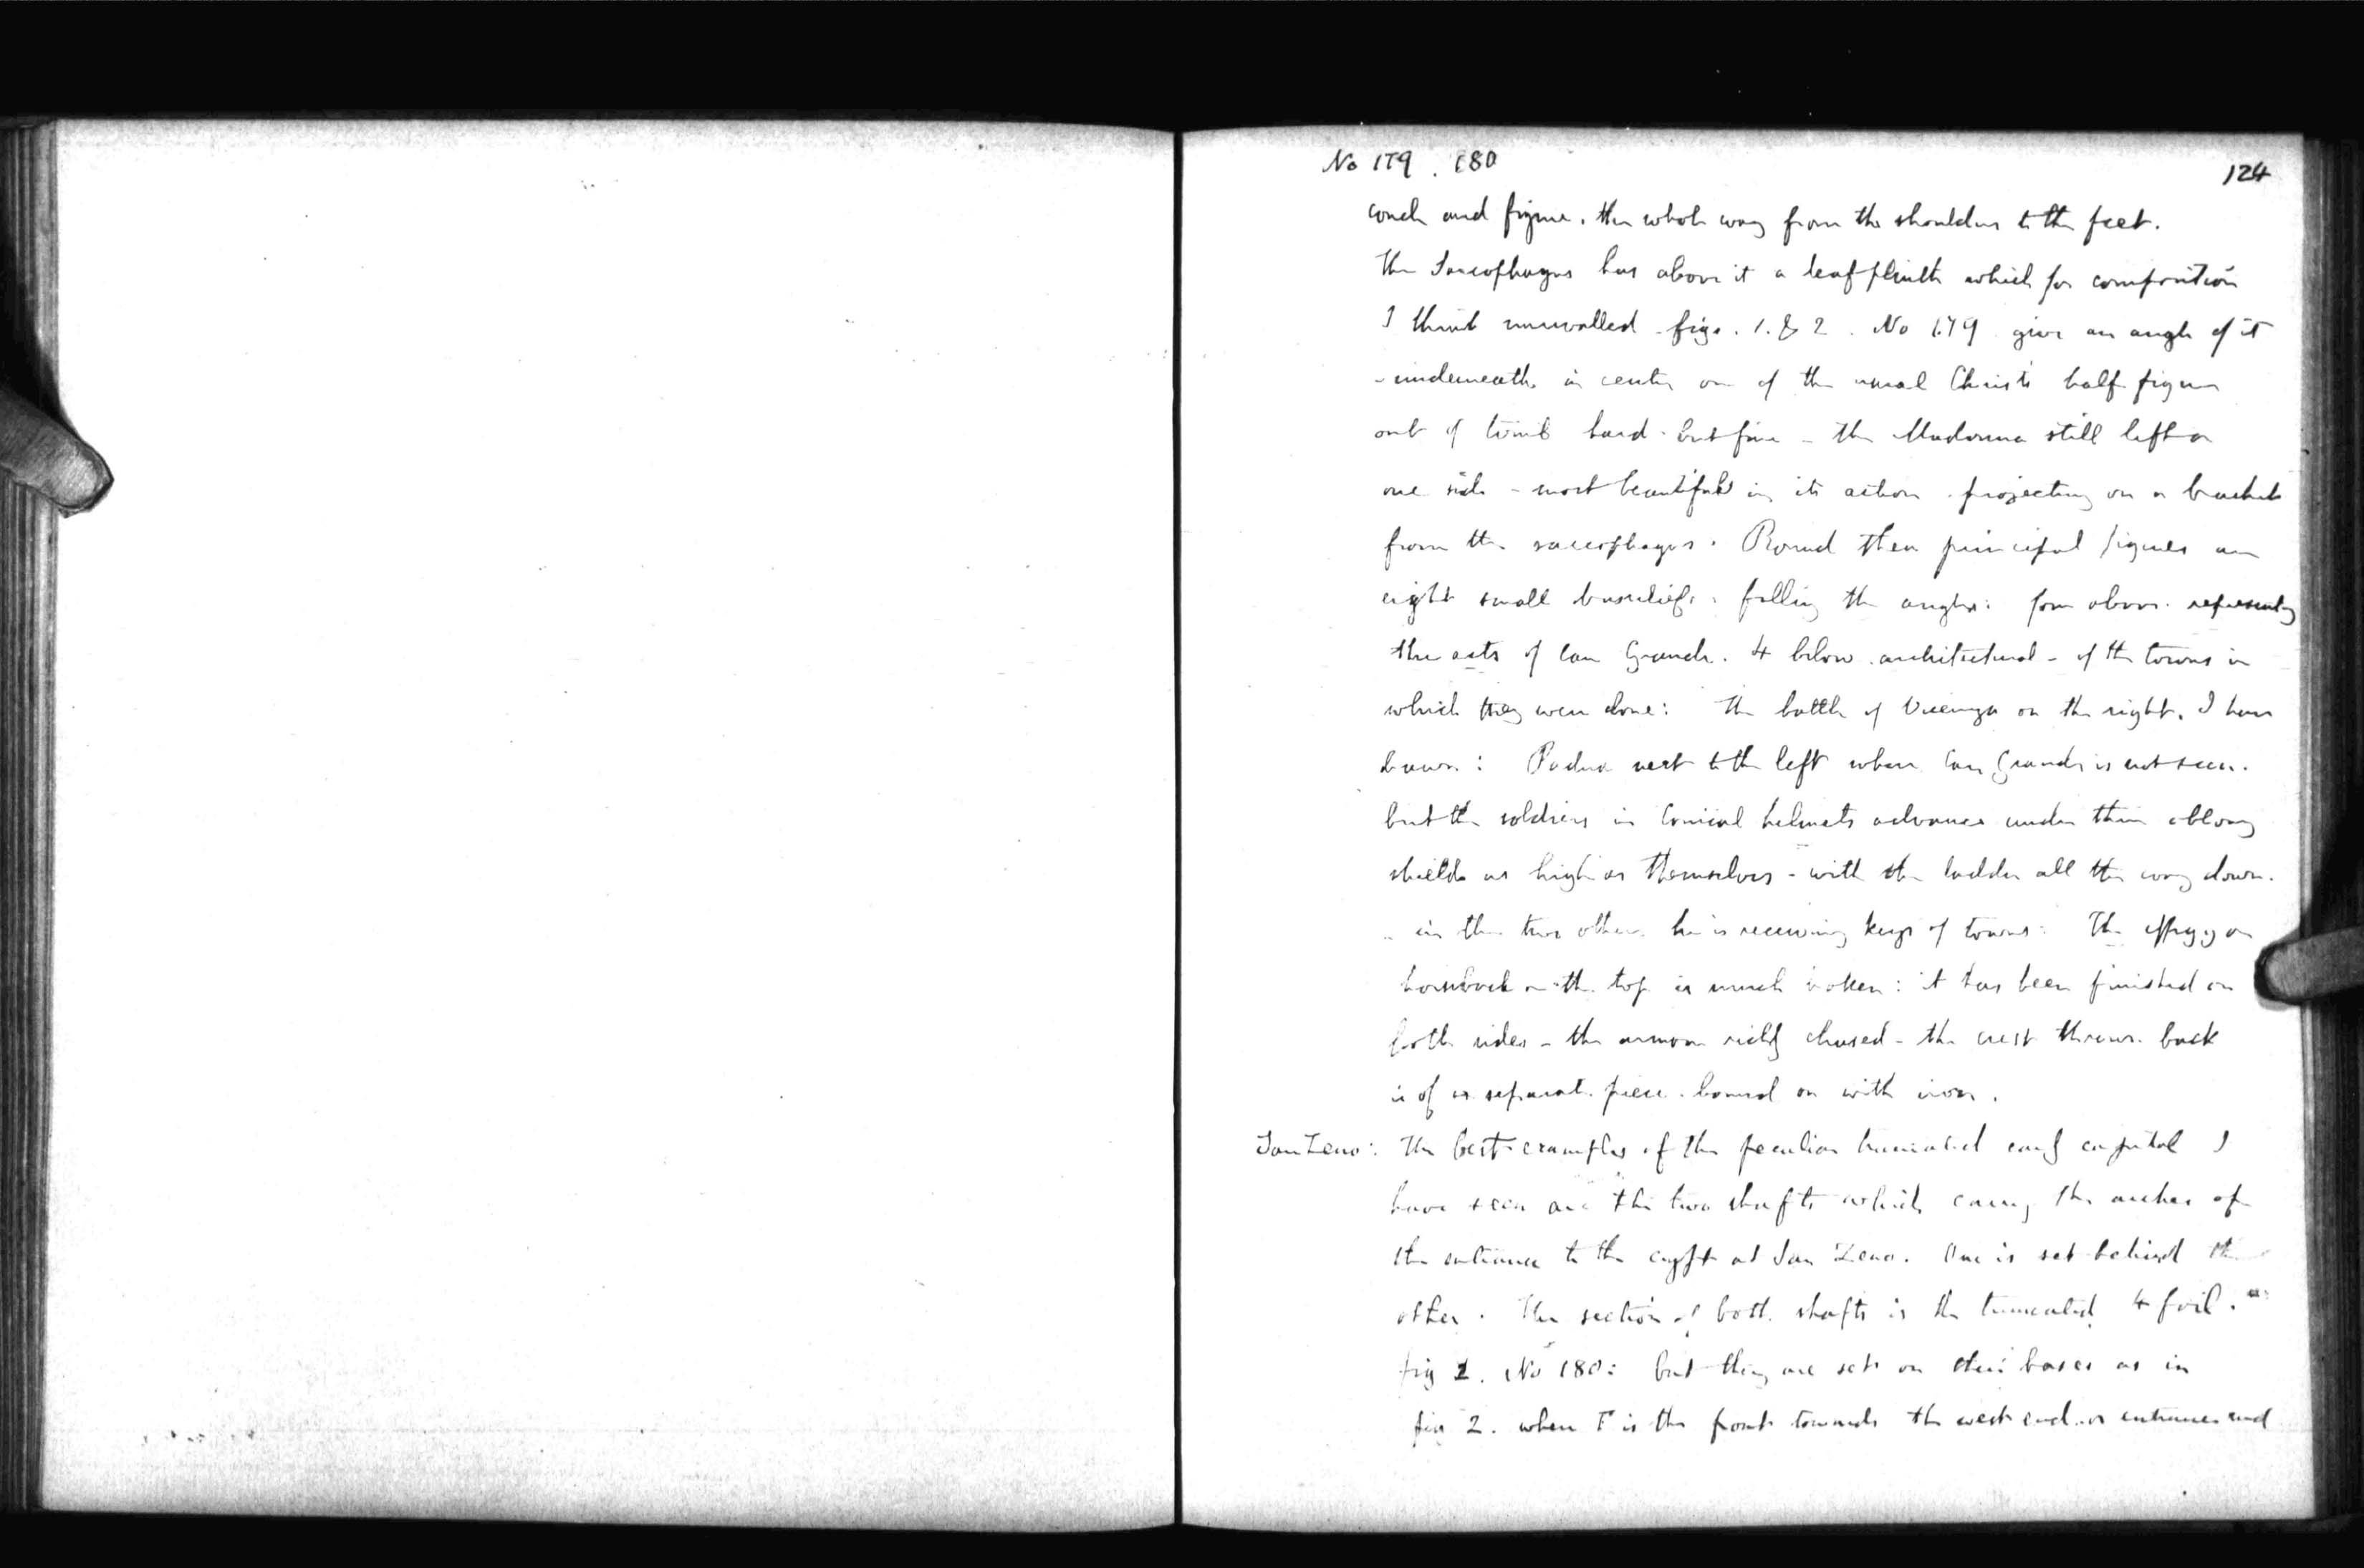 No 179 . 180
124
couch and figure. the whole way from the shoulders to the feet.
The Sarcophagus has above it a leaf plinth which for composition
I think unrivalled figs. 1. & 2. No 179 give an angle of it
- underneath. in center one of the usual Christs half figure
out of tomb hard. but fine - the Madonna still left on
one side - most beautiful in its action. projecting on a bracket
from the sarcophagus. Round these principal figures are
eight small basreliefs: filling the angles: four above. representing
the acts of Can Grande. 4 below. architectural - of the towns in
which they were done: The battle of Vicenza on the right. I have
drawn: Padua next to the left where Can Grande is not seen.
but the soldiers in conical helmets advance under their oblong
shields as high as themselves - with the ladder all the way down.
- in the two others he is receiving keys of towns: The effigy on
horseback on the top is much broken: it has been finished on
both sides - the armour richly chased - the crest thrown back
is of a separate piece. bound on with iron.
San Zeno: The best examples of the peculiar truncated capital I
have seen are the two shafts which carry the arches of
the entrance to the crypt at San Zeno. One is set behind the
other. The section of both shafts is the truncated 4 foil.
fig 1. No 180: but they are set on their bases as in
fig 2. where F is the front towards the west end. or entrance and